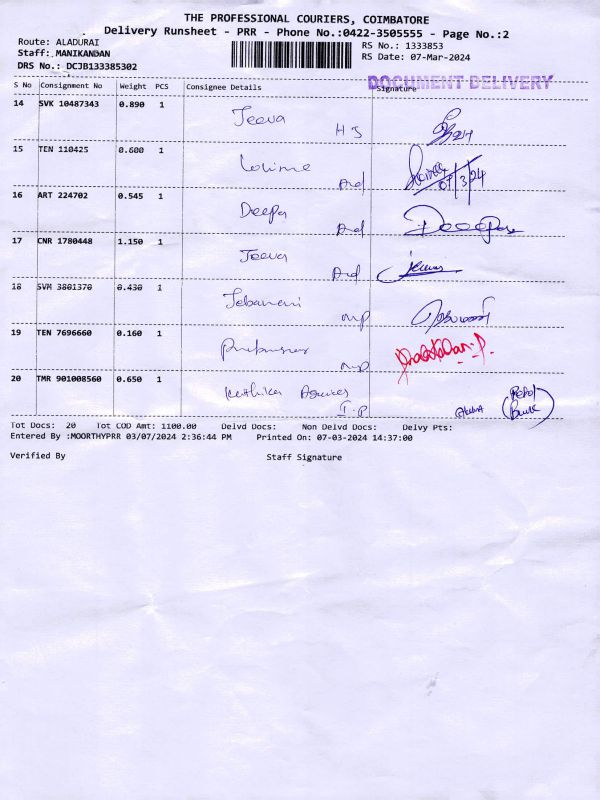 THE PROFESSIONAL COURIERS, COIMBATORE
Delivery Runsheet - PRR - Phone No.:0422-3505555 - Page No.:2
Route: ALADURAI
Staff: MANIKANDAN
DRS No.: DCJB133385302
RS No.: 1333853
RS Date: 07-Mar-2024
DOCUMENT DELIVERY
S No Consignment No Weight PCS Consignee Details Signature
14 SVK 10487343 0.890 1 Jeeva
H J
15 TEN 110425 0.600 1
07/3/24
16 ART 224702 0.545 1 Deepa
17 CNR 1780448 1.150 1 Jeeva
18 SVM 3801370 0.430 1 Jebamani
mp
19 TEN 7696660 0.160 1
mp
20 TMR 901008560 0.650 1
I.P
Tot Docs: 20 Tot COD Amt: 1100.00 Delvd Docs: Non Delvd Docs: Delvy Pts:
Entered By :MOORTHYPRR 03/07/2024 2:36:44 PM Printed On: 07-03-2024 14:37:00
Verified By Staff Signature